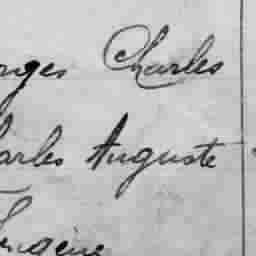 rges Charles
arles Auguste
Eugène